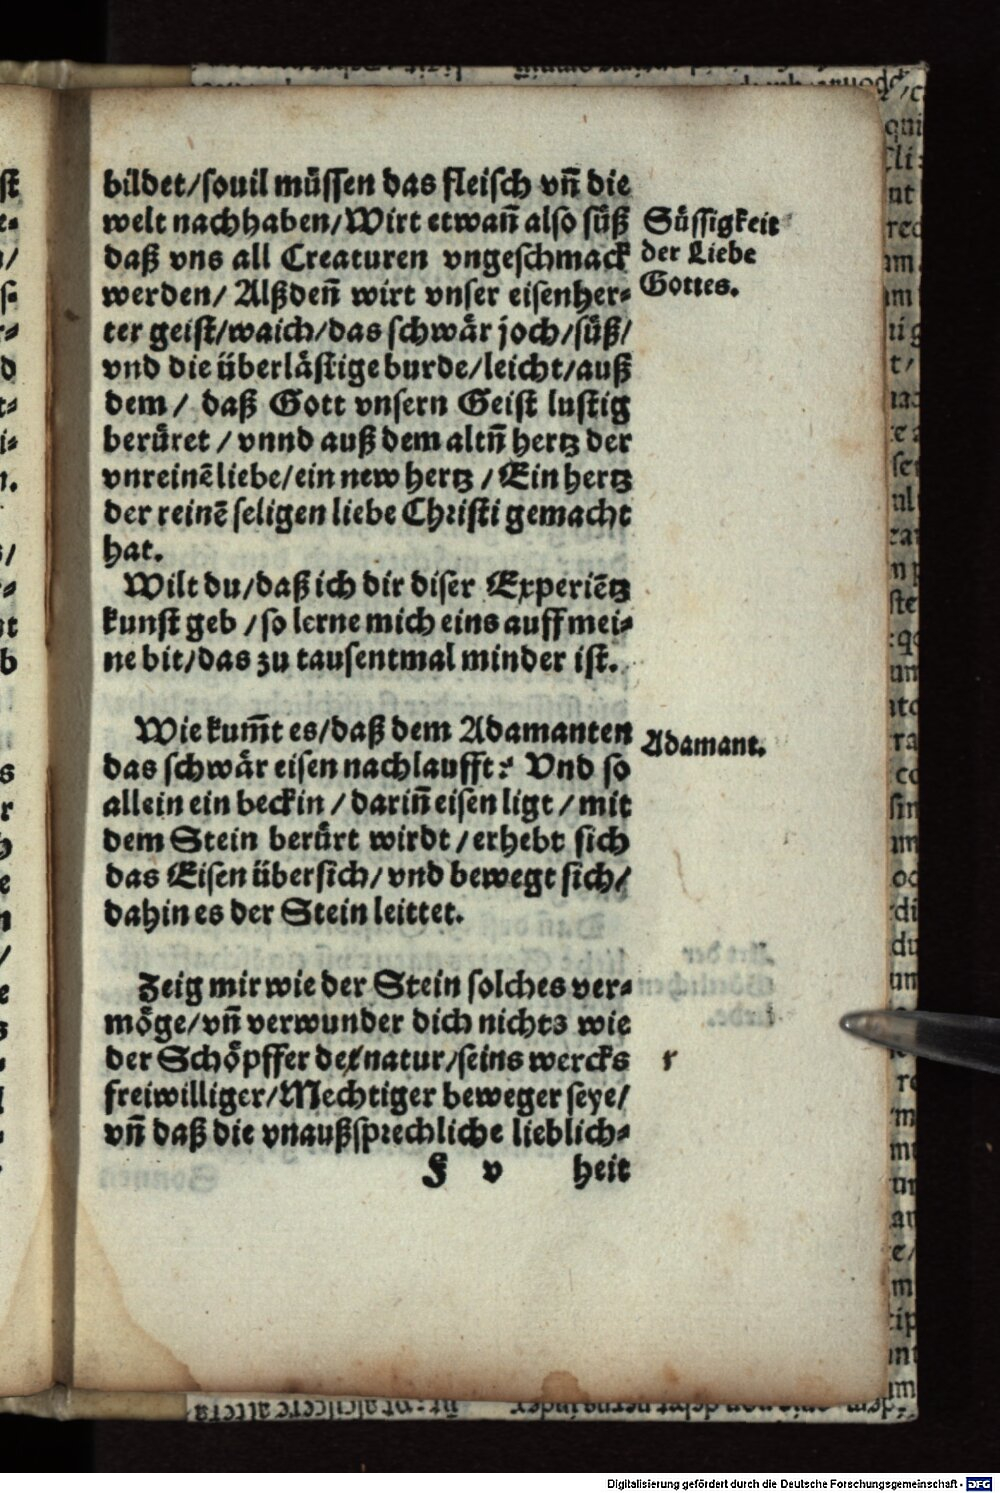 bildet/souil müssen das fleisch vñ die
welt nachhaben/Wirt etwañ also süß
daß vns all Creaturen vngeschmack
werden/ Alßdeñ wirt vnser eisenher⸗
ter geist/waich/das schwår joch/süß/
vnd die überlåstige burde/leicht/auß
dem/ daß Gott vnsern Geist lustig
berüret / vnnd auß dem altñ hertz der
vnreinẽ liebe/ein new hertz / Ein hertz
der reinẽ seligen liebe Christi gemacht
hat.
Süssigkeit
der Liebe
Gottes.
Wilt du/daß ich dir diser Experiẽtz
kunst geb /so lerne mich eins auff mei⸗
ne bit/das zu tausentmal minder ist.
Wie kum̃t es/daß dem Adamanten
das schwår eisen nachlaufft? Vnd so
allein ein beckin / dariñ eisen ligt / mit
dem Stein berürt wirdt /erhebt sich
das Eisen übersich/ vnd bewegt sich/
dahin es der Stein leittet.
Adamant.
Zeig mir wie der Stein solches ver⸗
möge/vñ verwunder dich nichts wie
der Schöpffer der natur/seins wercks
freiwilliger/Mechtiger beweger seye/
vñ daß die vnaußsprechliche lieblich⸗
r
F v heit
Digitalisierung gefördert durch die Deutsche Forschungsgemeinschaft - DFG